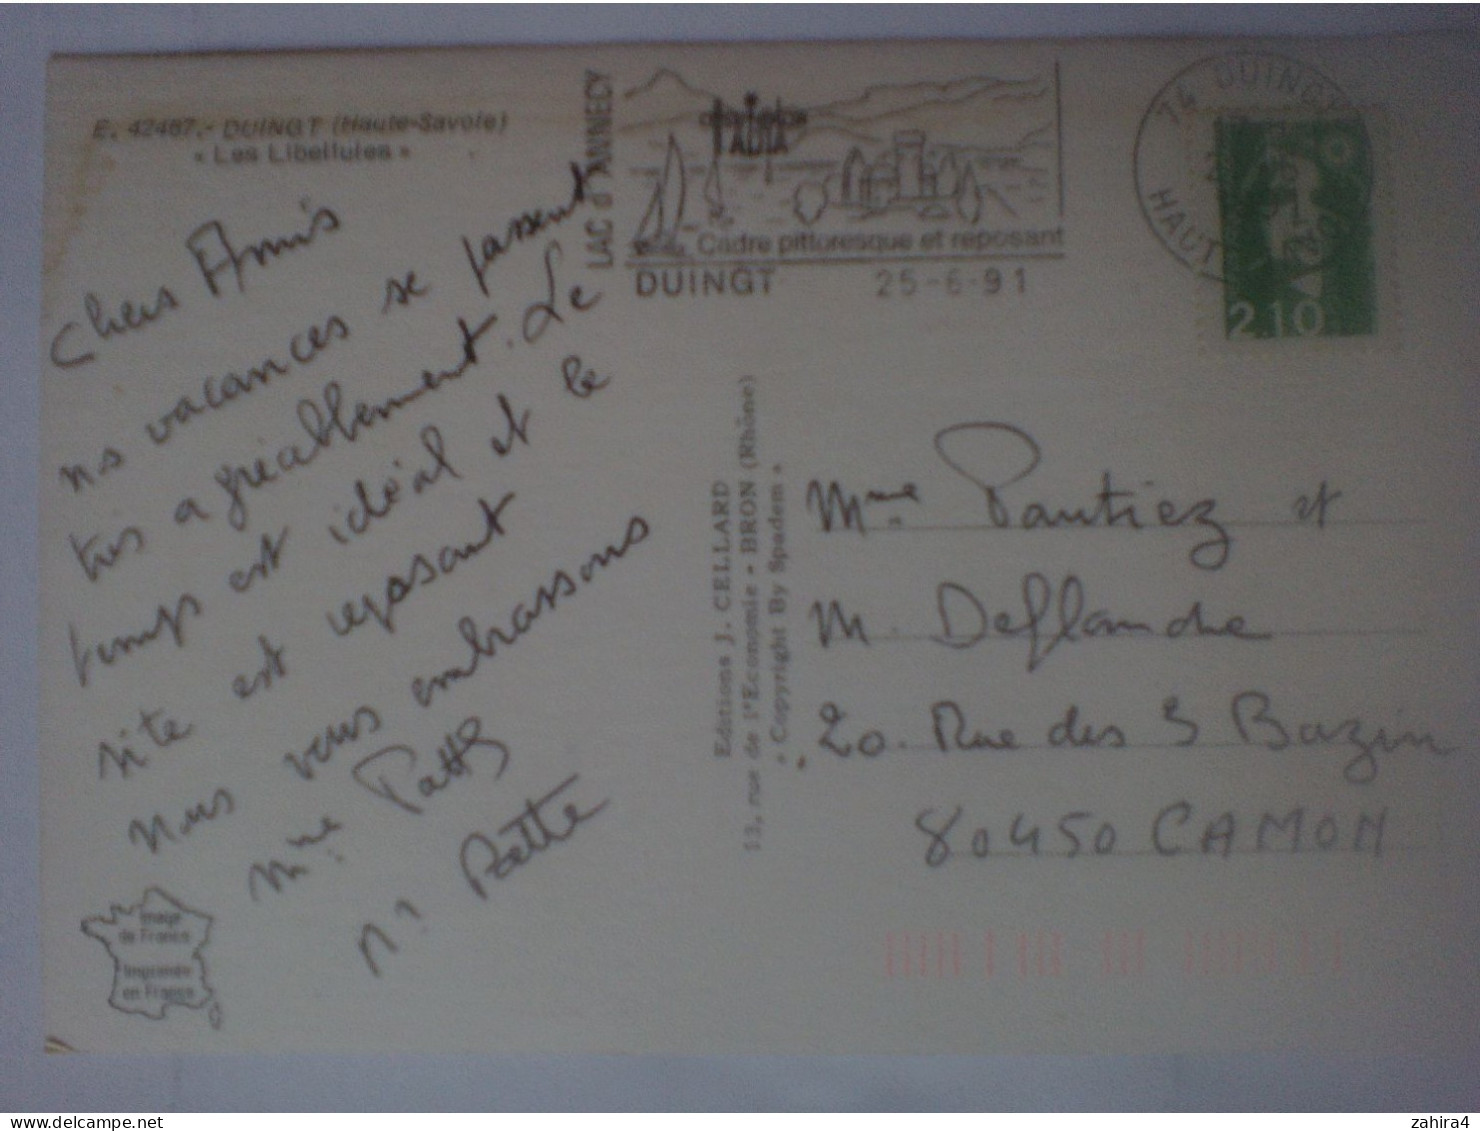 E. 42487.- DUINGT (Haute-Savoie)
« Les Libellules »
Chers Amis
ns vacances se passent
très agréablement. Le
temps est idéal et le
site est reposant
Nous vous embrassons
Mme Patty
M.
LAC d'ANNECY
Cadre pittoresque et reposant
DUINGT 25-6-91
74 DUINGT
2,10
Editions J. CELLARD
13, rue de l'Economie - BRON (Rhône)
« Copyright By Spadem »
Mme Pautiez et
M. Deflandre
20. Rue des 3 Bazin
80450 CAMON
Image
de France
Imprimée
en France
zahira4